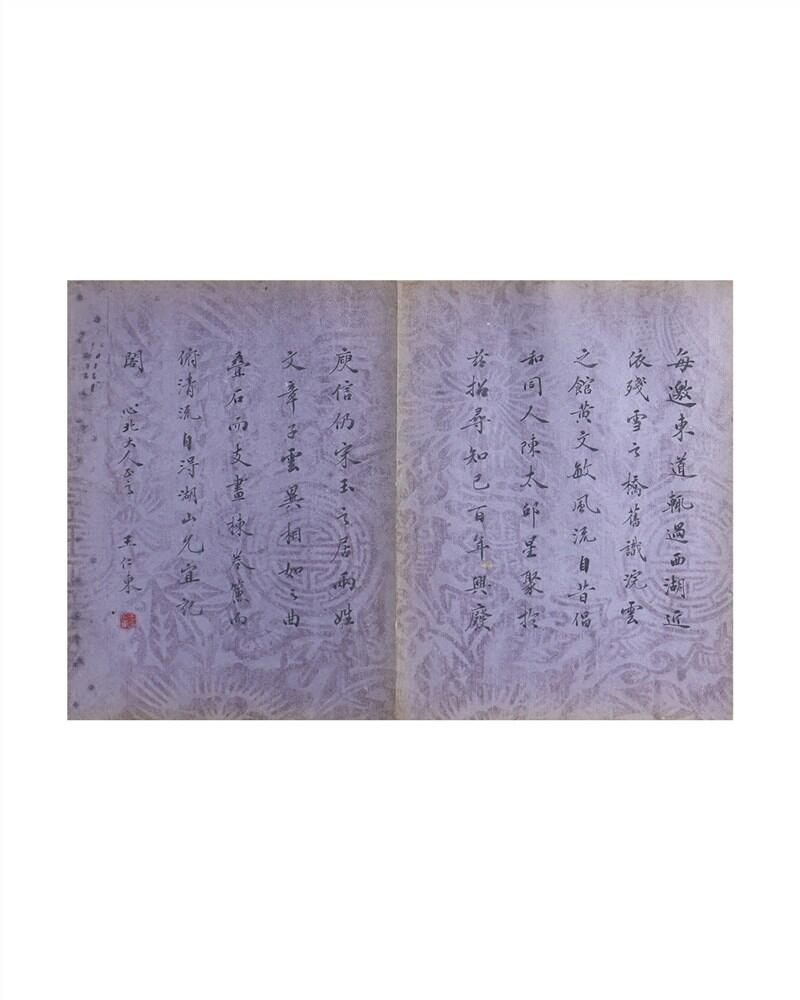 每邀東道輒過西湖近
依殘雪之橋舊識浣雲
之館黃文敏風流自昔倡
和同人陳太邱星聚於
茲招尋知己百年興廢
庾信仍宋玉之居兩姓
文章子雲異相如之曲
叠石而支畫棟卷簾而
俯清流自淂湖山允宜記
閣 心北大人正之 王仁東